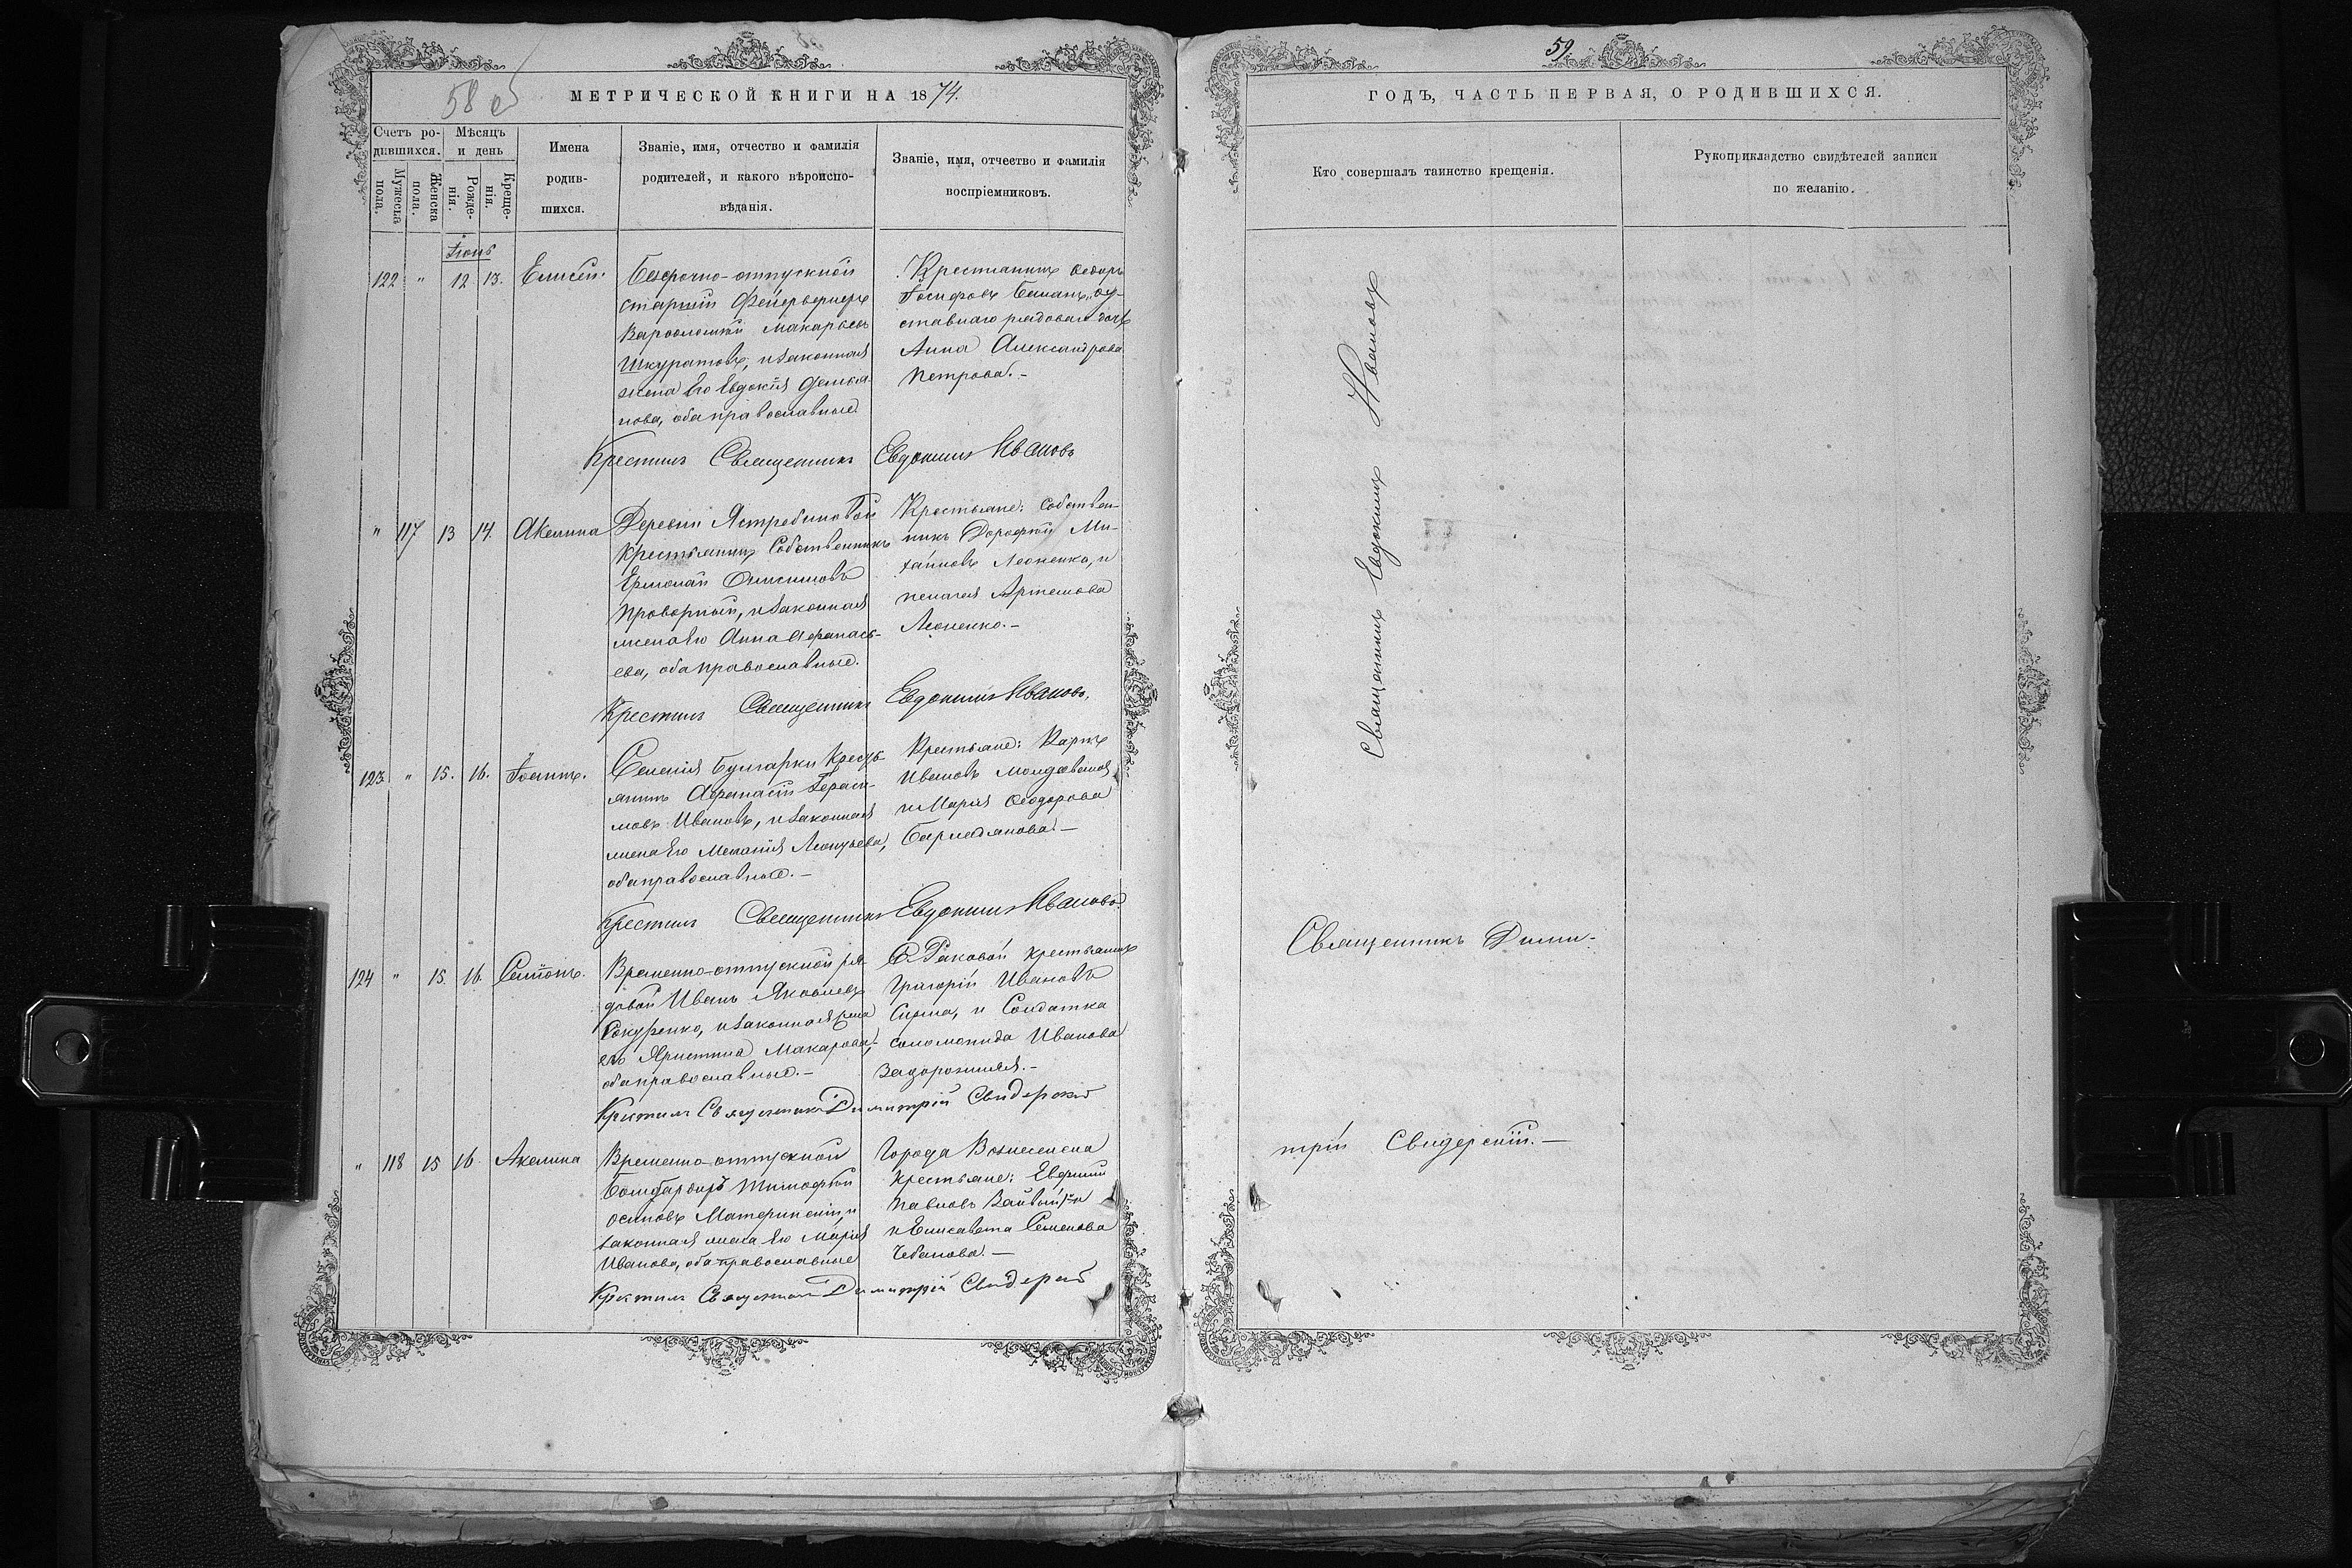 58 об
МЕТРИЧЕСКОЙ КНИГИ НА 1874.
Счетъ ро-
дившихся.
Мѣсяцъ
и день
Мужеска
пола.
Женска
пола.
Рожде-
нія.
Креще-
нія.
Имена
родив-
шихся.
Званіе, имя, отчество и фамилія
родителей, и какого вѣроиспо-
вѣданія.
Званіе, имя, отчество и фамилія
воспріемниковъ.
Іюнь
122 " 12 13. Елисей.
Безсрочно-отпускной
старшій Фейерверкеръ
Варѳоломей Макарьевъ
Шкуратовъ, и законная
жена его Евдокія
нова, оба православные.
Крестьянинъ Ѳедоръ
Іосифовъ от-
ставнаго рядоваго дочь
Анна Александрова
Петрова.-
Крестилъ Священникъ Евдокимъ Ивановъ
" 117 13 14. Акелина
Деревни Ястребиновой
крестьянинъ Собственникъ
Ермолай Онисимовъ
Проворный, и законная
жена его Анна Афанась-
ева, оба православные.
Крестьяне: Собствен-
никъ Дорофей Ми-
хайловъ Леоненко, и
Пелагея Артемова
Леоненко.-
Крестилъ Священникъ Евдокимъ Ивановъ.
123. " 15. 16. Іоаннъ.
Селенія Булгарки Кресть-
янинъ Афанасій Гераси-
мовъ Ивановъ, и законная
жена его Меланія Леонтьева,
оба православные.-
Крестьяне: Карпъ
Ивановъ
и Марія Ѳеодорова
Крестилъ Священникъ Евдокимъ Ивановъ.
124 " 15. 16. Симеонъ.
Временно-отпускной ря-
довой Иванъ Яковлевъ
Сокуренко, и законная жена
его Христина Макарова,
оба православные.-
С. Раковой крестьянинъ
Григорій Ивановъ
и Солдатка
Соломонида Иванова
Задорожная.-
Крестилъ Священникъ Димитрій Свидерскій
" 118 15 16. Акелина
Временно-отпускной
Бомбардиръ Тимофей
Осиповъ Материнскій, и
законная жена его Марія
Иванова, оба православные
Города Вознесенска
крестьяне: Евфимій
Павловъ
и Елисавета Семенова
Чебанова.-
Крестилъ Священникъ Димитрій Свидерскій
59.
ГОДЪ, ЧАСТЬ ПЕРВАЯ, О РОДИВШИХСЯ.
Кто совершалъ таинство крещенія.
Рукоприкладство свидѣтелей записи
по желанію.
Священникъ Евдокимъ Ивановъ
Священникъ Дими-
трій Свидерскій.-